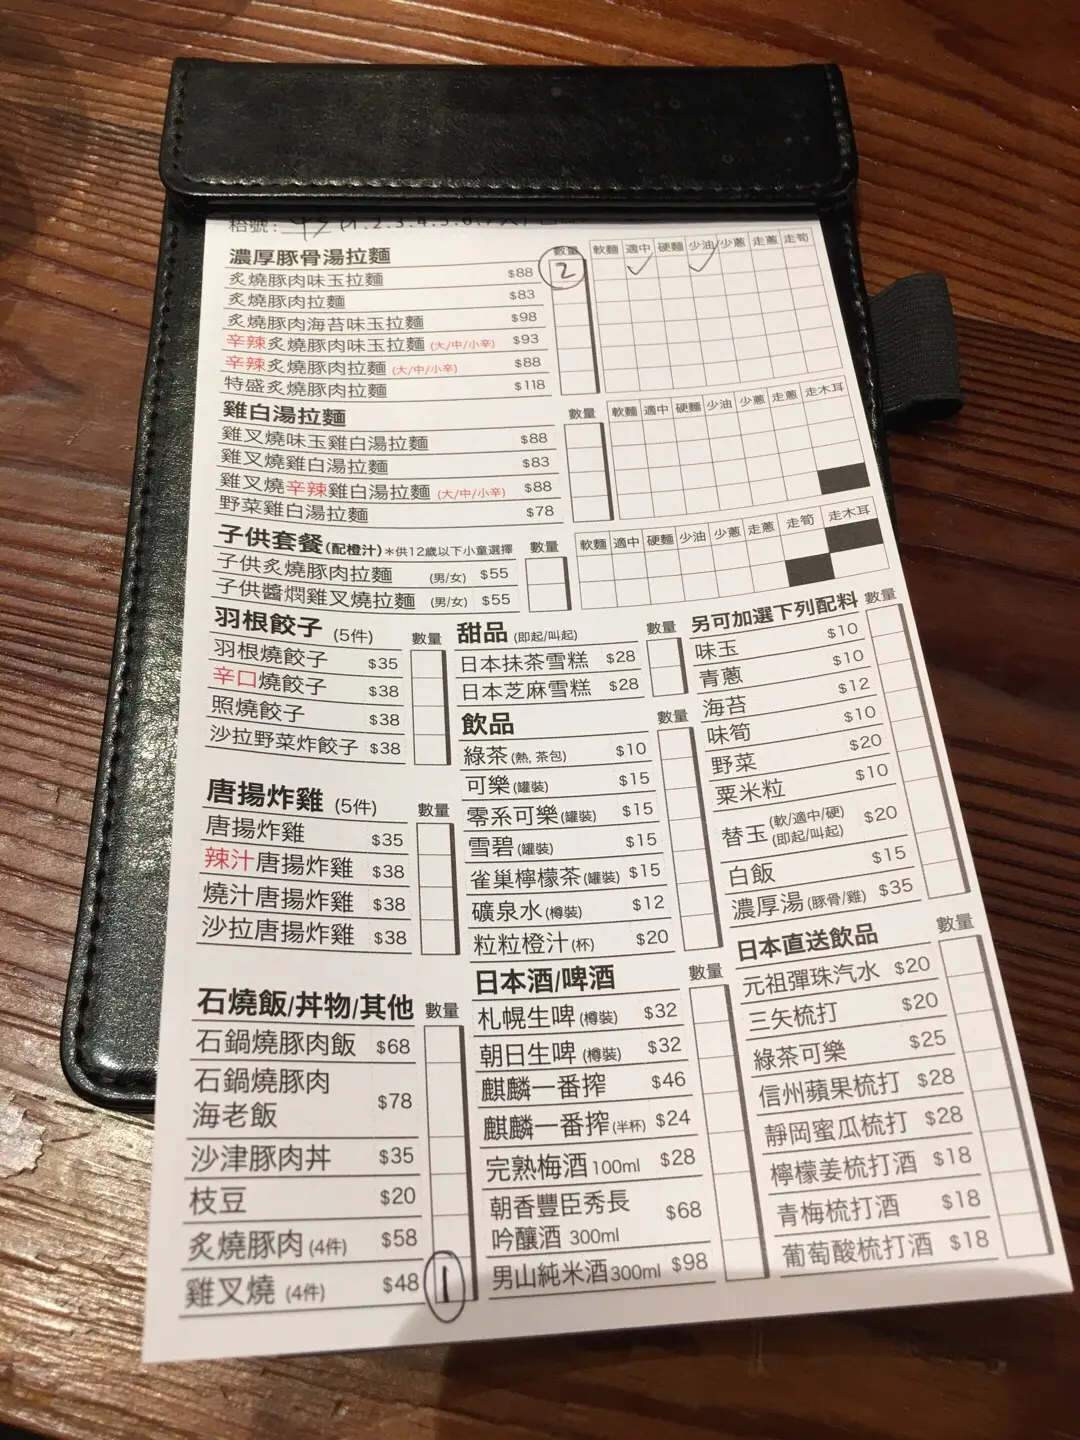 枱號: (1.2.3.4.5.6.7人)
濃厚豚骨湯拉麵 數量 軟麵 適中 硬麵 少油 少蔥 走蔥 走筍
炙燒豚肉味玉拉麵 $88 2 ✓ ✓
炙燒豚肉拉麵 $83
炙燒豚肉海苔味玉拉麵 $98
辛辣炙燒豚肉味玉拉麵 (大/中/小辛) $93
辛辣炙燒豚肉拉麵 (大/中/小辛) $88
特盛炙燒豚肉拉麵 $118
雞白湯拉麵 數量 軟麵 適中 硬麵 少油 少蔥 走蔥 走木耳
雞叉燒味玉雞白湯拉麵 $88
雞叉燒雞白湯拉麵 $83
雞叉燒辛辣雞白湯拉麵 (大/中/小辛) $88
野菜雞白湯拉麵 $78
子供套餐 (配橙汁) *供12歲以下小童選擇 數量 軟麵 適中 硬麵 少油 少蔥 走蔥 走筍 走木耳
子供炙燒豚肉拉麵 (男/女) $55
子供醬燜雞叉燒拉麵 (男/女) $55
羽根餃子 (5件) 數量
羽根燒餃子 $35
辛口燒餃子 $38
照燒餃子 $38
沙拉野菜炸餃子 $38
唐揚炸雞 (5件) 數量
唐揚炸雞 $35
辣汁唐揚炸雞 $38
燒汁唐揚炸雞 $38
沙拉唐揚炸雞 $38
石燒飯/丼物/其他 數量
石鍋燒豚肉飯 $68
石鍋燒豚肉
海老飯 $78
沙津豚肉丼 $35
枝豆 $20
炙燒豚肉 (4件) $58
雞叉燒 (4件) $48 1
甜品 (即起/叫起) 數量
日本抹茶雪糕 $28
日本芝麻雪糕 $28
飲品 數量
綠茶 (熱, 茶包) $10
可樂 (罐裝) $15
零系可樂 (罐裝) $15
雪碧 (罐裝) $15
雀巢檸檬茶 (罐裝) $15
礦泉水 (樽裝) $12
粒粒橙汁 (杯) $20
日本酒/啤酒 數量
札幌生啤 (樽裝) $32
朝日生啤 (樽裝) $32
麒麟一番搾 $46
麒麟一番搾 (半杯) $24
完熟梅酒 100ml $28
朝香豐臣秀長
吟釀酒 300ml $68
男山純米酒 300ml $98
另可加選下列配料 數量
味玉 $10
青蔥 $10
海苔 $12
味筍 $10
野菜 $20
粟米粒 $10
替玉 (軟/適中/硬) (即起/叫起) $20
白飯 $15
濃厚湯 (豚骨/雞) $35
日本直送飲品 數量
元祖彈珠汽水 $20
三矢梳打 $20
綠茶可樂 $25
信州蘋果梳打 $28
靜岡蜜瓜梳打 $28
檸檬姜梳打酒 $18
青梅梳打酒 $18
葡萄酸梳打酒 $18